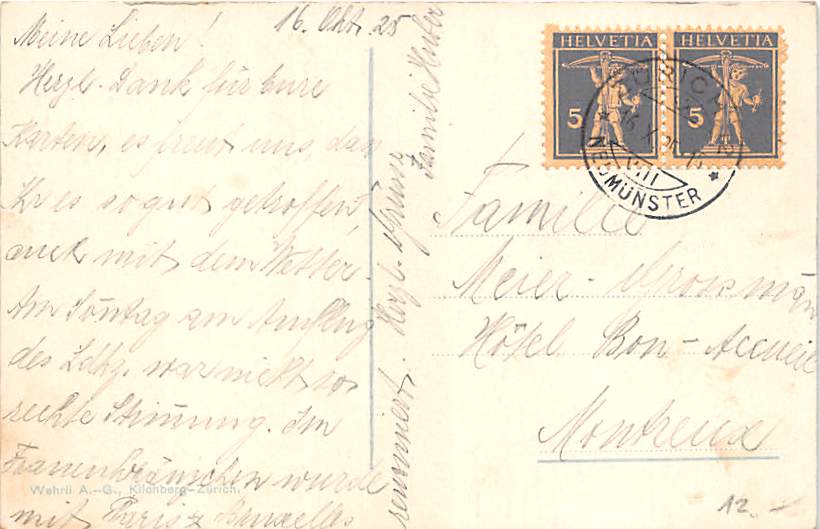 16. Okt. 25
Meine Lieben!
Herzl. Dank für Eure
Karten, es freut uns, dass
Ihr es so gut getroffen
auch mit dem Wetter.
Am Sonntag am Ausflug
des Ldhg. war nicht so
rechte Stimmung. Im
Frauenkränzchen wurde
mit Paris & Bruxelles
renommiert. Herzl. Grüsse
Familie
Wehrli A.-G., Kilchberg-Zürich.
HELVETIA
5
HELVETIA
5
ZÜRICH
VIII
NEUMÜNSTER
Familie
Meier-Grossmann
Hôtel Bon-Accueil
Montreux